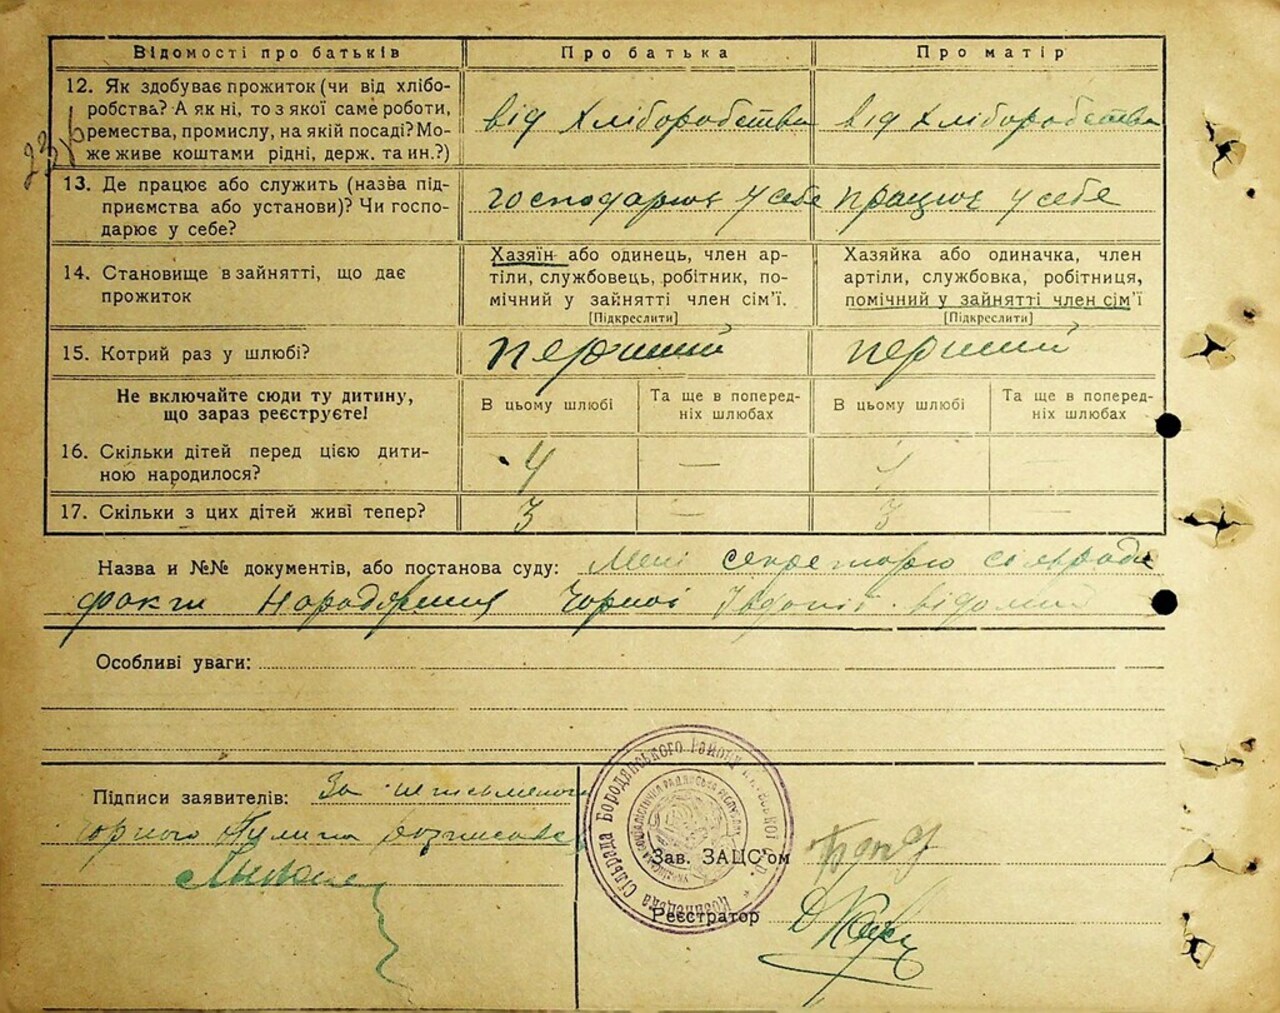 Відомості про батьків
Про батька
Про матір
12. Як здобуває прожиток (чи від хлібо-
робства? А як ні, то з якої саме роботи,
ремества, промислу, на якій посаді? Мо-
же живе коштами рідні, держ. та ин.?)
від хліборобства
від хліборобства
13. Де працює або служить (назва під-
приємства або установи)? Чи госпо-
дарює у себе?
господарює у себе
працює у себе
14. Становище в зайнятті, що дає
прожиток
Хазяїн або одинець, член ар-
тіли, службовець, робітник, по-
мічний у зайнятті член сім'ї.
[Підкреслити]
Хазяйка або одиначка, член
артіли, службовка, робітниця,
помічний у зайнятті член сім'ї
[Підкреслити]
15. Котрий раз у шлюбі?
перший
перший
Не включайте сюди ту дитину,
що зараз реєструєте!
В цьому шлюбі
Та ще в поперед-
ніх шлюбах
В цьому шлюбі
Та ще в поперед-
ніх шлюбах
16. Скільки дітей перед цією дити-
ною народилося?
4
—
4
—
17. Скільки з цих дітей живі тепер?
3
—
3
—
Назва и №№ документів, або постанова суду: Мені секретарю сільради
факт народження Чорної відомий
Особливі уваги:
Підписи заявителів: За
Чорного
Зав. ЗАЦС'ом
Реєстратор
Сільрада Бородянського Району Київської
23